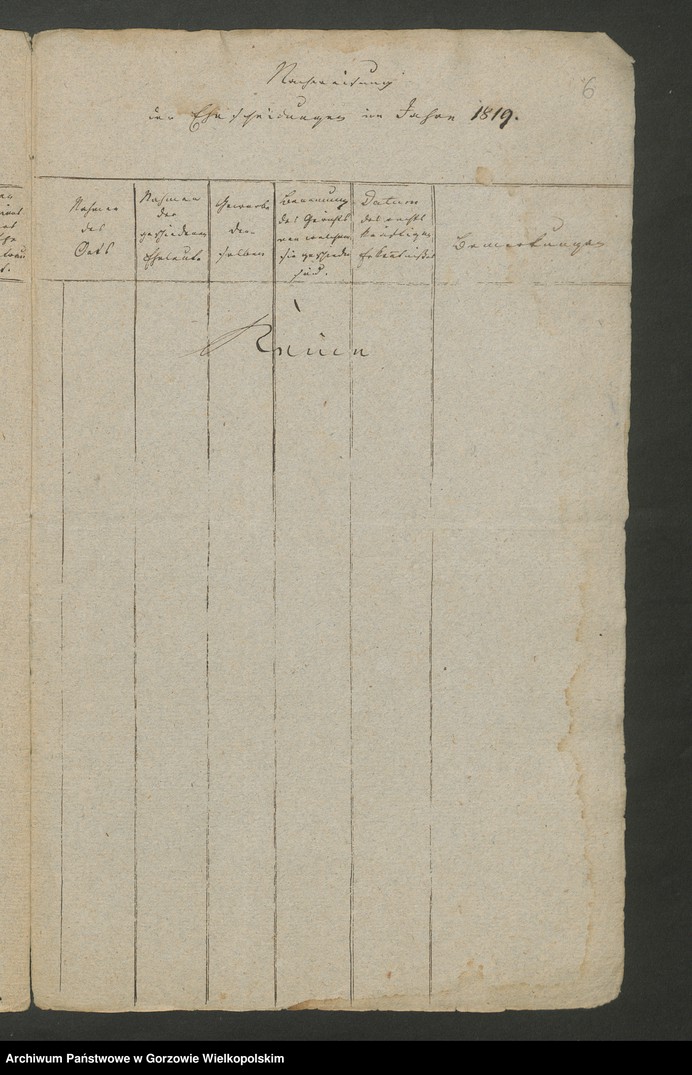 Nachweisung
6
der Ehescheidungen im Jahre 1819.
Nahmen
des
Orts
Nahmen
der
geschiedenen
Eheleute
Gewerbe
der-
selben
Benennung
des Gerichts
von welchem
sie geschieden
sind.
Datum
des rechts
kräftigen
Erkentnißes
Bemerkungen
Keine
Archiwum Państwowe w Gorzowie Wielkopolskim